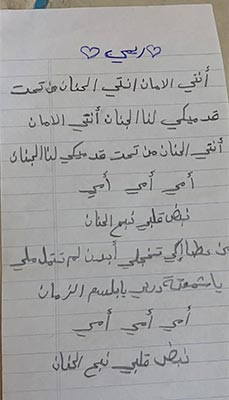 ♡ امي ♡
أنتي الامان انتي الحنان من تحت
قدميكي لنا الجنان أنتي الامان
أنتي الحنان من تحت قدميكي لنا الجنان
أمي أمي أمي
نبض قلبي نبع الحنان
عطاياكي تحيلي أبدن لم تتململي
يا شمعة دربي يا بلسم الزمان
أمي أمي أمي
نبض قلبي نبع الحنان